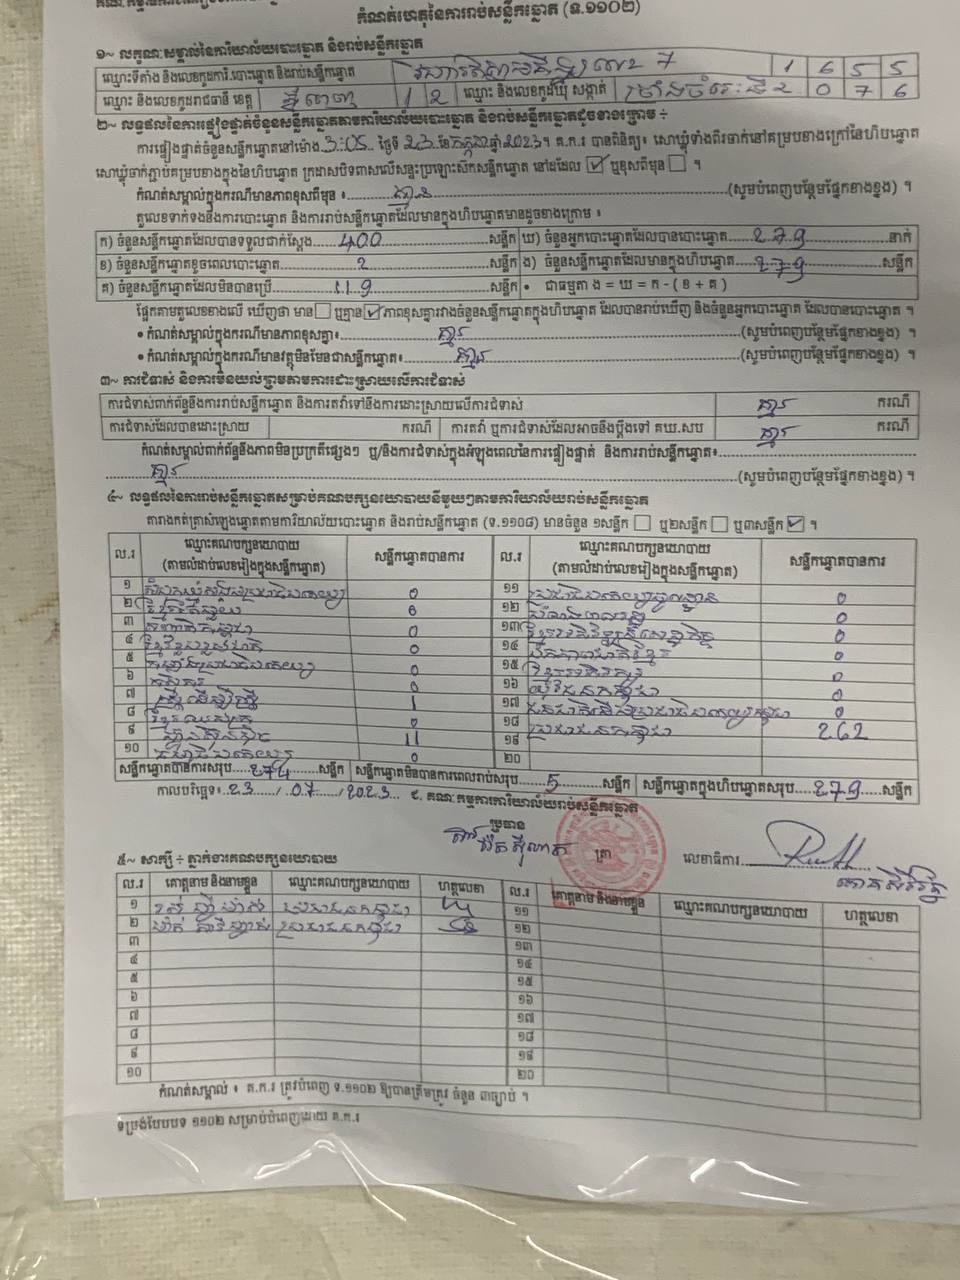 កំណត់ហេតុនៃការរាប់សន្លឹកឆ្នោត (ទ.១១០២)
១~ លក្ខណៈសម្គាល់នៃការិយាល័យបោះឆ្នោត និងរាប់សន្លឹកឆ្នោត
ឈ្មោះទីតាំង និងលេខកូដការិ.បោះឆ្នោត និងរាប់សន្លឹកឆ្នោត 7 1 6 5 5
ឈ្មោះ និងលេខកូដរាជធានី ខេត្ត ភ្នំពេញ 1 2 ឈ្មោះ និងលេខកូដឃុំ សង្កាត់ ច្រាំងចំរេះទី2 0 7 6
២~ លទ្ធផលនៃការផ្ទៀងផ្ទាត់ចំនួនសន្លឹកឆ្នោតតាមការិយាល័យបោះឆ្នោត និងរាប់សន្លឹកឆ្នោតដូចខាងក្រោម ÷
ការផ្ទៀងផ្ទាត់ចំនួនសន្លឹកឆ្នោតនៅម៉ោង 3:05 ថ្ងៃទី 23 ខែកក្កដា ឆ្នាំ 2023 ។ គ.ក.រ បានពិនិត្យ៖ សោឃ្មុំទាំងពីរចាក់នៅគម្របខាងក្រៅនៃហិបឆ្នោត
សោឃ្មុំចាក់ភ្ជាប់គម្របខាងក្នុងនៃហិបឆ្នោត ក្រដាសបិទពាសលើសន្ទះប្រឡោះស៊កសន្លឹកឆ្នោត នៅដដែល ☑ ឬខុសពីមុន ☐ ។
កំណត់សម្គាល់ក្នុងករណីមានភាពខុសពីមុន ៖ គ្មាន (សូមបំពេញបន្ថែមផ្នែកខាងខ្នង) ។
តួលេខទាក់ទងនឹងការបោះឆ្នោត និងការរាប់សន្លឹកឆ្នោតដែលមានក្នុងហិបឆ្នោតមានដូចខាងក្រោម ៖
ក) ចំនួនសន្លឹកឆ្នោតដែលបានទទួលជាក់ស្តែង 400 សន្លឹក ឃ) ចំនួនអ្នកបោះឆ្នោតដែលបានបោះឆ្នោត 279 នាក់
ខ) ចំនួនសន្លឹកឆ្នោតខូចពេលបោះឆ្នោត 2 សន្លឹក ង) ចំនួនសន្លឹកឆ្នោតដែលមានក្នុងហិបឆ្នោត 279 សន្លឹក
គ) ចំនួនសន្លឹកឆ្នោតដែលមិនបានប្រើ 119 សន្លឹក • ជាធម្មតា ង = ឃ = ក - ( ខ + គ )
ផ្អែកតាមតួលេខខាងលើ ឃើញថា មាន ☐ ឬគ្មាន ☑ ភាពខុសគ្នារវាងចំនួនសន្លឹកឆ្នោតក្នុងហិបឆ្នោត ដែលបានរាប់ឃើញ និងចំនួនអ្នកបោះឆ្នោត ដែលបានបោះឆ្នោត ។
• កំណត់សម្គាល់ក្នុងករណីមានភាពខុសគ្នា៖ គ្មាន (សូមបំពេញបន្ថែមផ្នែកខាងខ្នង) ។
• កំណត់សម្គាល់ក្នុងករណីមានវត្ថុមិនមែនជាសន្លឹកឆ្នោត៖ គ្មាន (សូមបំពេញបន្ថែមផ្នែកខាងខ្នង) ។
៣~ ការជំទាស់ និងការមិនយល់ព្រមតាមការដោះស្រាយលើការជំទាស់
ការជំទាស់ពាក់ព័ន្ធនឹងការរាប់សន្លឹកឆ្នោត និងការតវ៉ាទៅនឹងការដោះស្រាយលើការជំទាស់ គ្មាន ករណី
ការជំទាស់ដែលបានដោះស្រាយ ករណី ការតវ៉ា ឬការជំទាស់ដែលអាចនឹងប្តឹងទៅ គឃ.សប គ្មាន ករណី
កំណត់សម្គាល់ពាក់ព័ន្ធនឹងភាពមិនប្រក្រតីផ្សេងៗ ឬ/និងការជំទាស់ក្នុងអំឡុងពេលនៃការផ្ទៀងផ្ទាត់ និងការរាប់សន្លឹកឆ្នោត៖
គ្មាន (សូមបំពេញបន្ថែមផ្នែកខាងខ្នង) ។
៤~ លទ្ធផលនៃការរាប់សន្លឹកឆ្នោតសម្រាប់គណបក្សនយោបាយនីមួយៗតាមការិយាល័យរាប់សន្លឹកឆ្នោត
តារាងកត់ត្រាសំឡេងឆ្នោតតាមការិយាល័យបោះឆ្នោត និងរាប់សន្លឹកឆ្នោត (ទ.១១០៨) មានចំនួន ១សន្លឹក ☐ ឬ២សន្លឹក ☐ ឬ៣សន្លឹក ☑ ។
ល.រ ឈ្មោះគណបក្សនយោបាយ (តាមលំដាប់លេខរៀងក្នុងសន្លឹកឆ្នោត) សន្លឹកឆ្នោតបានការ ល.រ ឈ្មោះគណបក្សនយោបាយ (តាមលំដាប់លេខរៀងក្នុងសន្លឹកឆ្នោត) សន្លឹកឆ្នោតបានការ
១ សំបុកឃ្មុំសង្គមប្រជាធិបតេយ្យ 0 ១១ 0
២ ខ្មែររួបរួមជាតិ 0 ១២ 0
៣ 0 ១៣ 0
៤ 0 ១៤ ឯកភាពជាតិខ្មែរ 0
៥ កម្លាំងប្រជាធិបតេយ្យ 0 ១៥ 0
៦ កសិករ 0 ១៦ យុវជនកម្ពុជា 0
៧ ស្ត្រីដើម្បីស្ត្រី 1 ១៧ 0
៨ 0 ១៨ ប្រជាជនកម្ពុជា 262
៩ ហ៊្វុនស៊ិនប៉ិច 11 ១៩
១០ 0 ២០
សន្លឹកឆ្នោតបានការសរុប 274 សន្លឹក សន្លឹកឆ្នោតមិនបានការពេលរាប់សរុប 5 សន្លឹក សន្លឹកឆ្នោតក្នុងហិបឆ្នោតសរុប 279 សន្លឹក
កាលបរិច្ឆេទ៖ 23 / 07 / 2023 ជ. គណៈកម្មការការិយាល័យរាប់សន្លឹកឆ្នោត
ប្រធាន ត្រា លេខាធិការ
៥~ សាក្សី ÷ ភ្នាក់ងារគណបក្សនយោបាយ
ល.រ គោត្តនាម និងនាមខ្លួន ឈ្មោះគណបក្សនយោបាយ ហត្ថលេខា ល.រ គោត្តនាម និងនាមខ្លួន ឈ្មោះគណបក្សនយោបាយ ហត្ថលេខា
១ ប្រជាជនកម្ពុជា ១១
២ ប្រជាជនកម្ពុជា ១២
៣ ១៣
៤ ១៤
៥ ១៥
៦ ១៦
៧ ១៧
៨ ១៨
៩ ១៩
១០ ២០
កំណត់សម្គាល់ ៖ គ.ក.រ ត្រូវបំពេញ ទ.១១០២ ឱ្យបានត្រឹមត្រូវ ចំនួន ៣ច្បាប់ ។
ទម្រង់បែបបទ ១១០២ សម្រាប់បំពេញដោយ គ.ក.រ